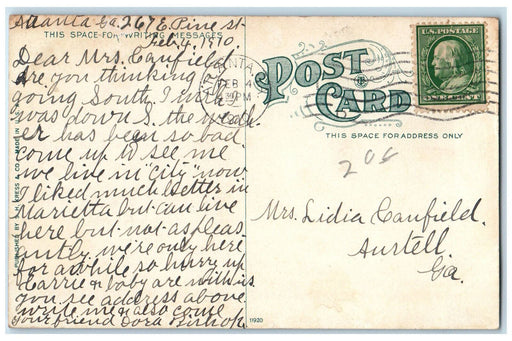 Atlanta Ga. 267 E. Pine st
THIS SPACE FOR WRITING MESSAGES
Feb 4, 1910.
Dear Mrs. Canfield.
are you thinking of
going South, I wish I
was down S. the weath
er has been so bad.
come up to see me
we live in "city" now
I liked much better in
Marietta but can live
here but not as pleas
antly, we're only here
for awhile so hurry up
Carrie & baby are with us
you see address above
write me & also come
your friend Dora Bishop
PUBLISHED BY S. H. KRESS & CO.
MADE IN
ATLANTA
FEB 4
PM
POST CARD
U.S. POSTAGE
ONE CENT
THIS SPACE FOR ADDRESS ONLY
Mrs. Lidia Canfield.
Austell,
Ga.
11920